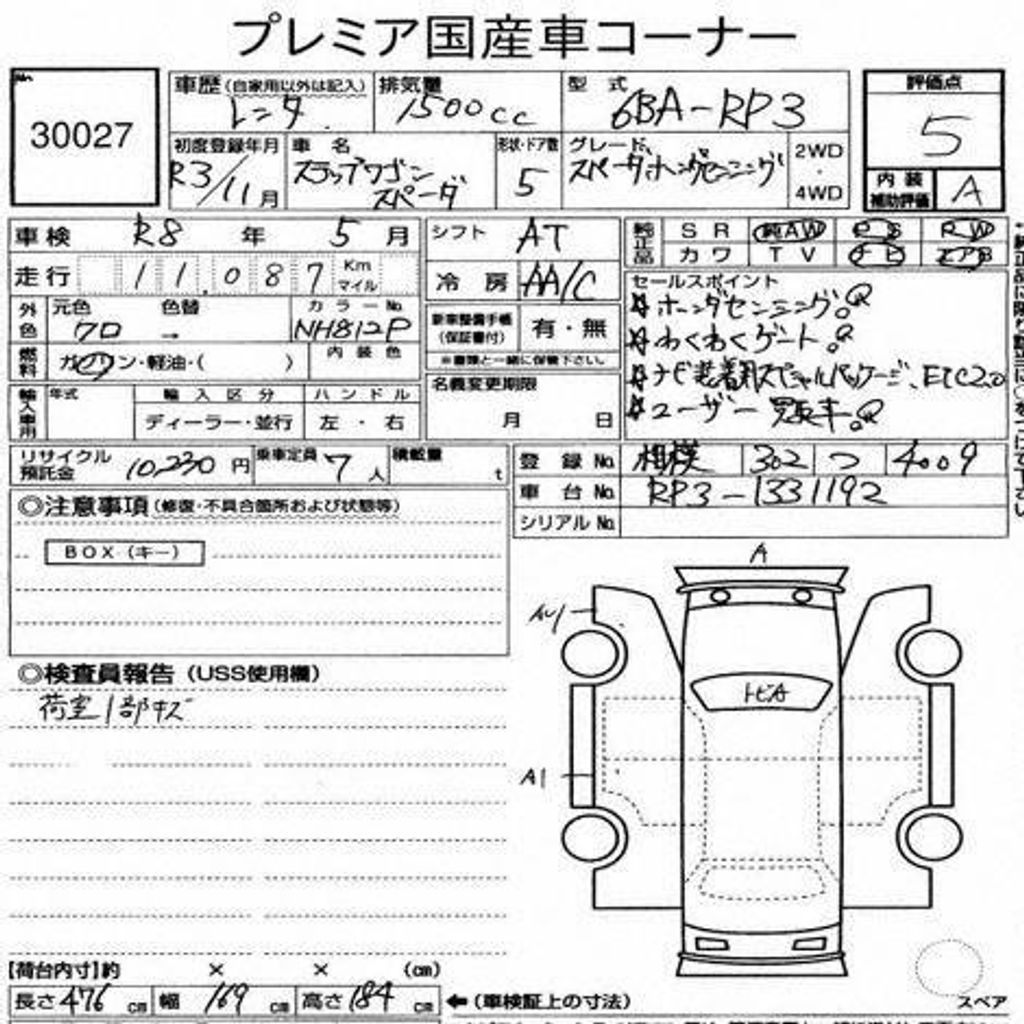 プレミア国産車コーナー
No.
30027
車歴(自家用以外は記入)
レンタ
排気量
1500cc
型式
6BA-RP3
評価点
5
初度登録年月
R3/11月
車名
ステップワゴン
スパーダ
形状・ドア数
5
グレード
スパーダ、ホンダセンシング
2WD
・
4WD
内装
補助評価
A
車検 R8 年 5 月
シフト AT
純正品
SR 純AW PS RW
カワ TV ナビ エアB
走行 11,087 Km マイル
冷房 AA/C
外色
元色 クロ
色替 →
カラーNo. NH812P
新車整備手帳
(保証書付)
有・無
※書類と一緒に保管下さい。
セールスポイント
ホンダセンシング
わくわくゲート
ナビ装着用スペシャルパッケージ、ETC2.0
ユーザー買取車
燃料
ガソリン・軽油・( )
内装色
輸入車用
年式
輸入区分
ディーラー・並行
ハンドル
左・右
名義変更期限
月 日
リサイクル
預託金
10,230円
乗車定員 7人
積載量 t
登録No. 相模 302 つ 4009
車台No. RP3-1331192
シリアルNo.
◎注意事項(修復・不具合箇所および状態等)
BOX(キー)
◎検査員報告(USS使用欄)
荷室1部キズ
A
トビA
A1
【荷台内寸】約 × × (cm)
長さ476cm 幅169cm 高さ184cm
←(車検証上の寸法)
スペア